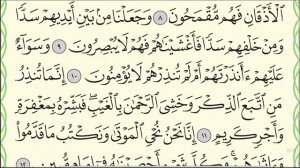 ٱلْأَذْقَانِ فَهُم مُّقْمَحُونَ ٨ وَجَعَلْنَا مِنۢ بَيْنِ أَيْدِيهِمْ سَدًّا
وَمِنْ خَلْفِهِمْ سَدًّا فَأَغْشَيْنَٰهُمْ فَهُمْ لَا يُبْصِرُونَ ٩ وَسَوَآءٌ
عَلَيْهِمْ ءَأَنذَرْتَهُمْ أَمْ لَمْ تُنذِرْهُمْ لَا يُؤْمِنُونَ ١٠ إِنَّمَا تُنذِرُ
مَنِ ٱتَّبَعَ ٱلذِّكْرَ وَخَشِيَ ٱلرَّحْمَٰنَ بِٱلْغَيْبِ ۖ فَبَشِّرْهُ بِمَغْفِرَةٍ
وَأَجْرٍ كَرِيمٍ ١١ إِنَّا نَحْنُ نُحْيِ ٱلْمَوْتَىٰ وَنَكْتُبُ مَا قَدَّمُوا۟